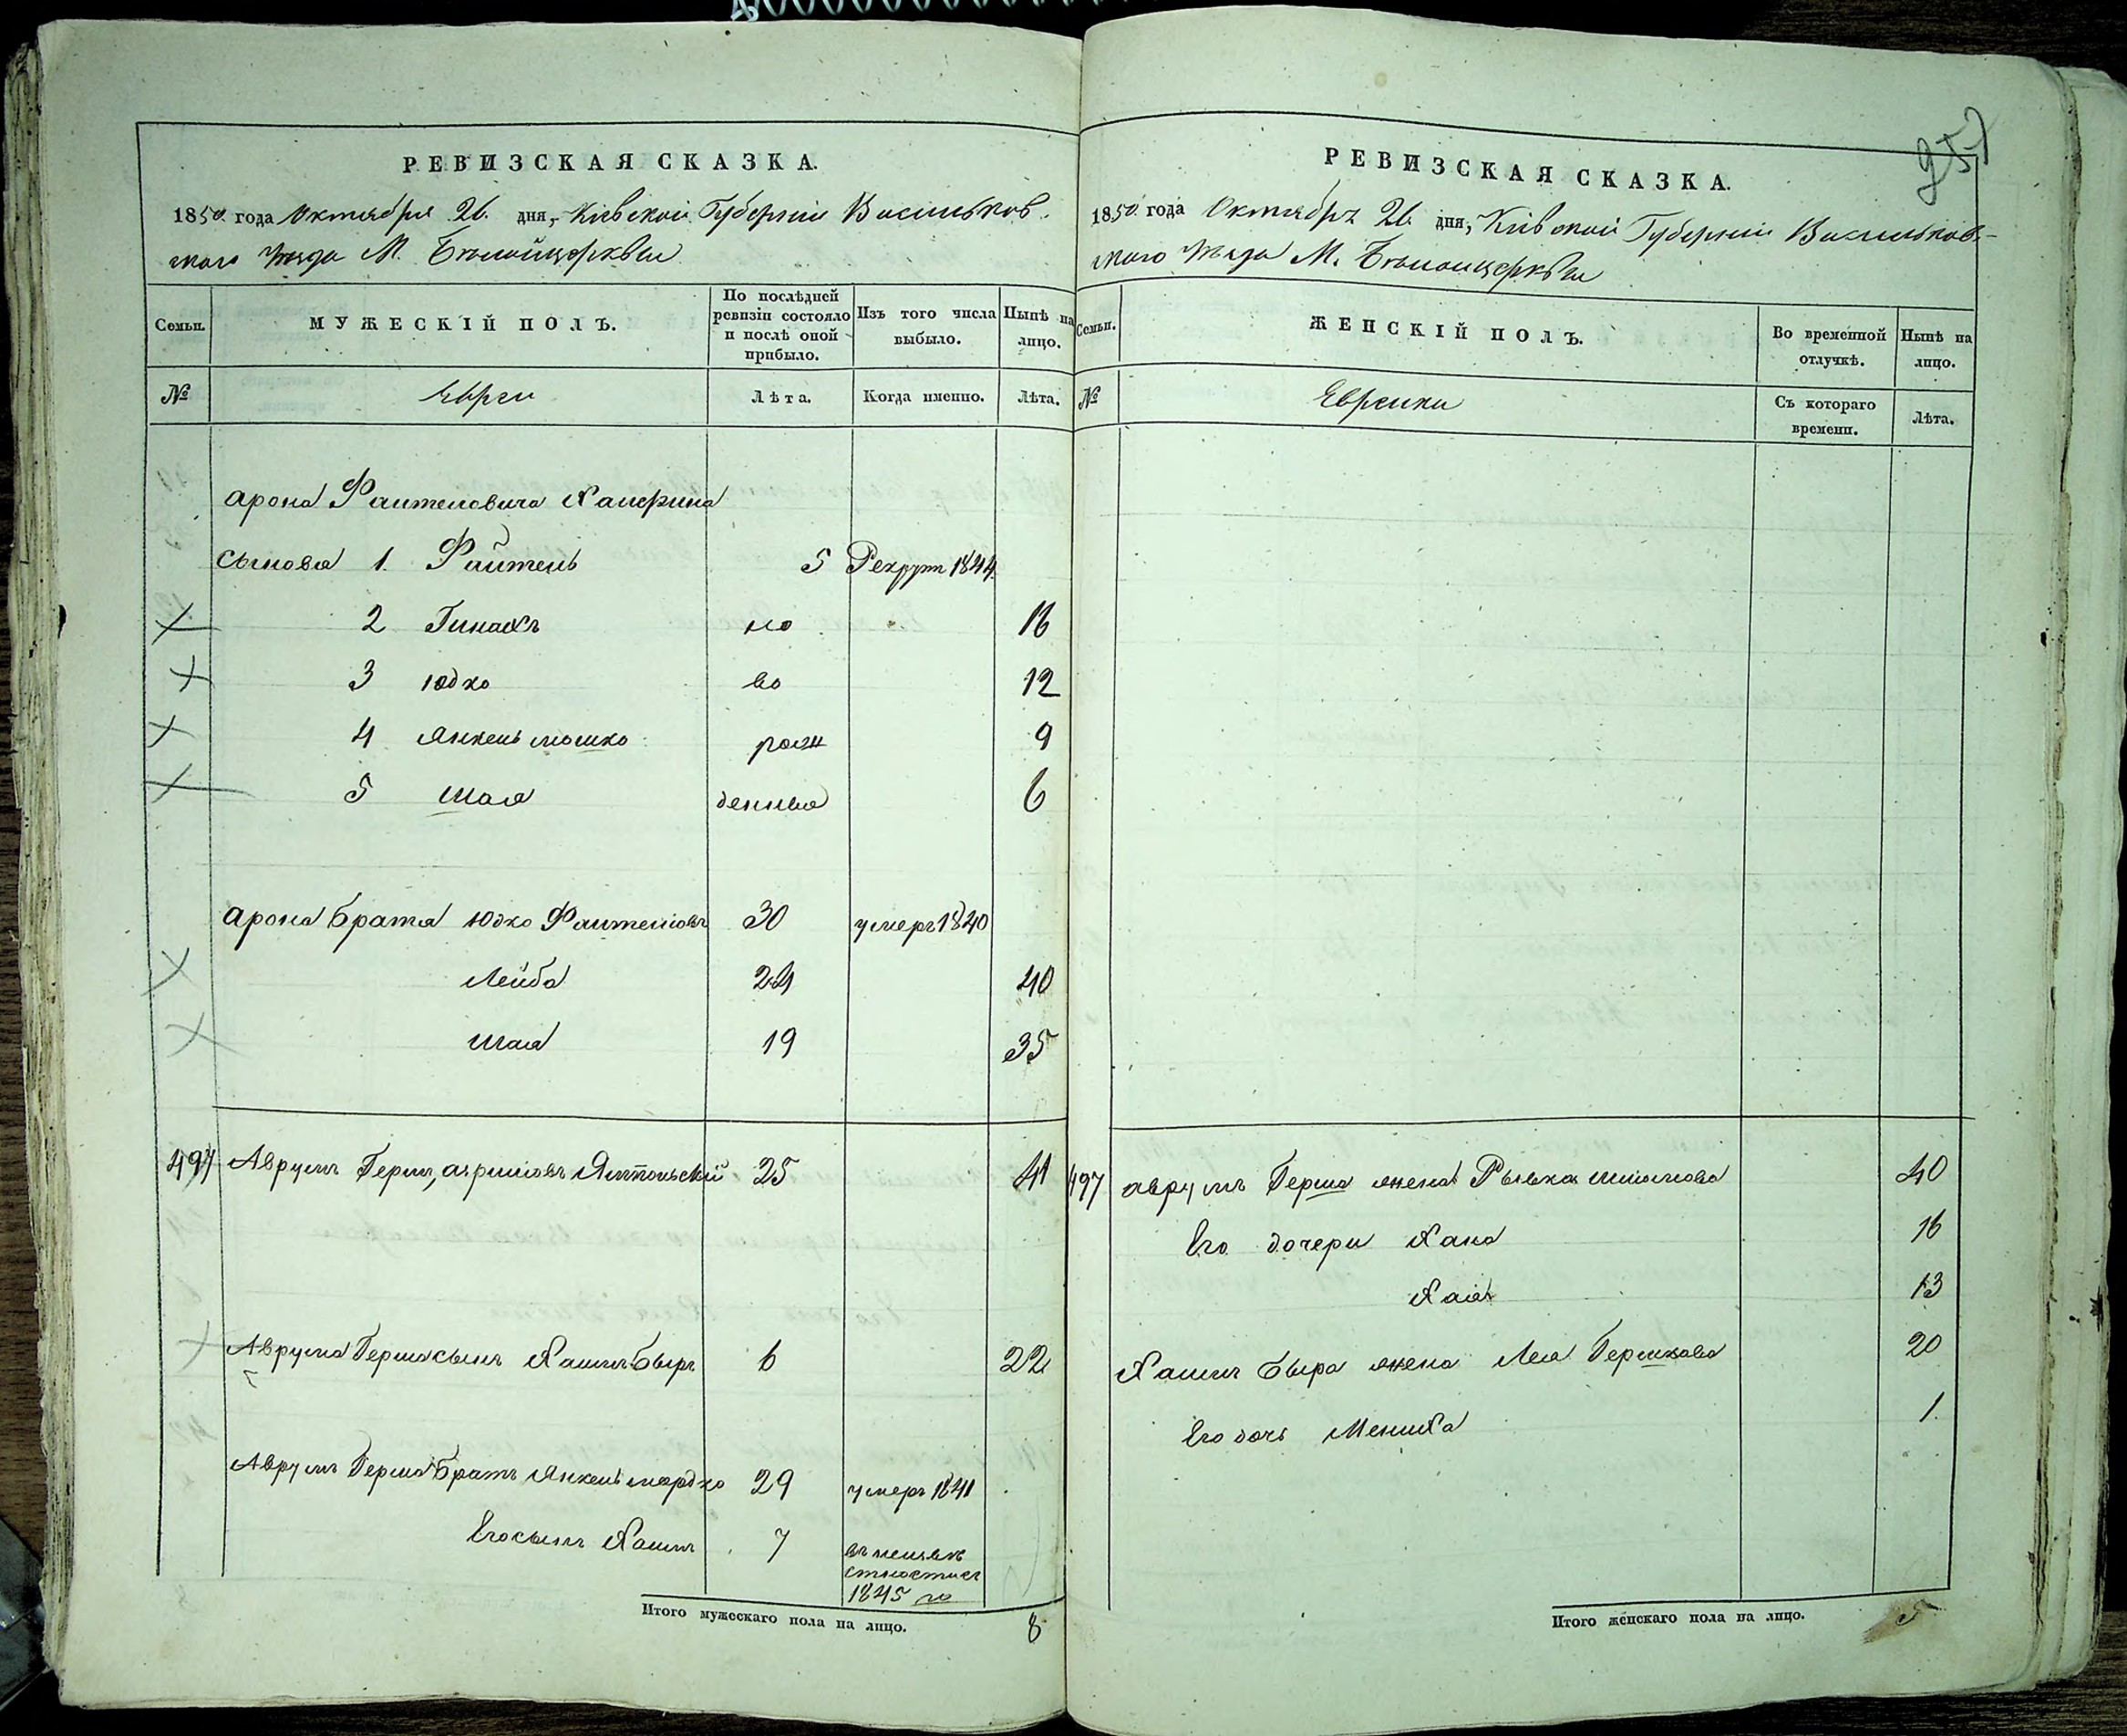 РЕВИЗСКАЯ СКАЗКА.
1850 года Октября 26. дня, Кіевской Губерніи Васильков-
скаго Уезда М. Белойцеркви
Семьи. МУЖЕСКІЙ ПОЛЪ. По послѣдней ревизіи состояло и послѣ оной прибыло. Изъ того числа выбыло. Нынѣ на лицо.
№ Евреи Лѣта. Когда именно. Лѣта.
Арона Файтелевича Халерина
Сыновья 1. Файтель 5 Рекрут 1844.
2 Пинахъ но 16
3 Юдко во 12
4 Янкель мошко рож 9
5 Шая денные 6
Арона Братья Юдко Файтелiовъ 30 умеръ 1840
Лейба 24 40
Шая 19 35
497 Аврумъ Герш, Ямпольскій 25 41
Аврума Герша сынъ Хаимъ Быръ 6 22
Аврумъ Герша Братъ Янкель мордко 29 умеръ 1841
Его сынъ Хаимъ 7 1845 го
Итого мужескаго пола на лицо. 8
257
РЕВИЗСКАЯ СКАЗКА.
1850. года Октября 26. дня, Кіевской Губерніи Васильков-
скаго Уезда М. Белойцеркви
Семьи. ЖЕНСКІЙ ПОЛЪ. Во временной отлучкѣ. Нынѣ на лицо.
№ Еврейки Съ котораго времени. Лѣта.
497 Аврумъ Герша жена Рывка Шлiомова 40
Его дочери Хана 16
Хаiя 13
Хаимъ Быра жена Лея Гершкова 20
Его дочь Мениха 1.
Итого женскаго пола на лицо. 5